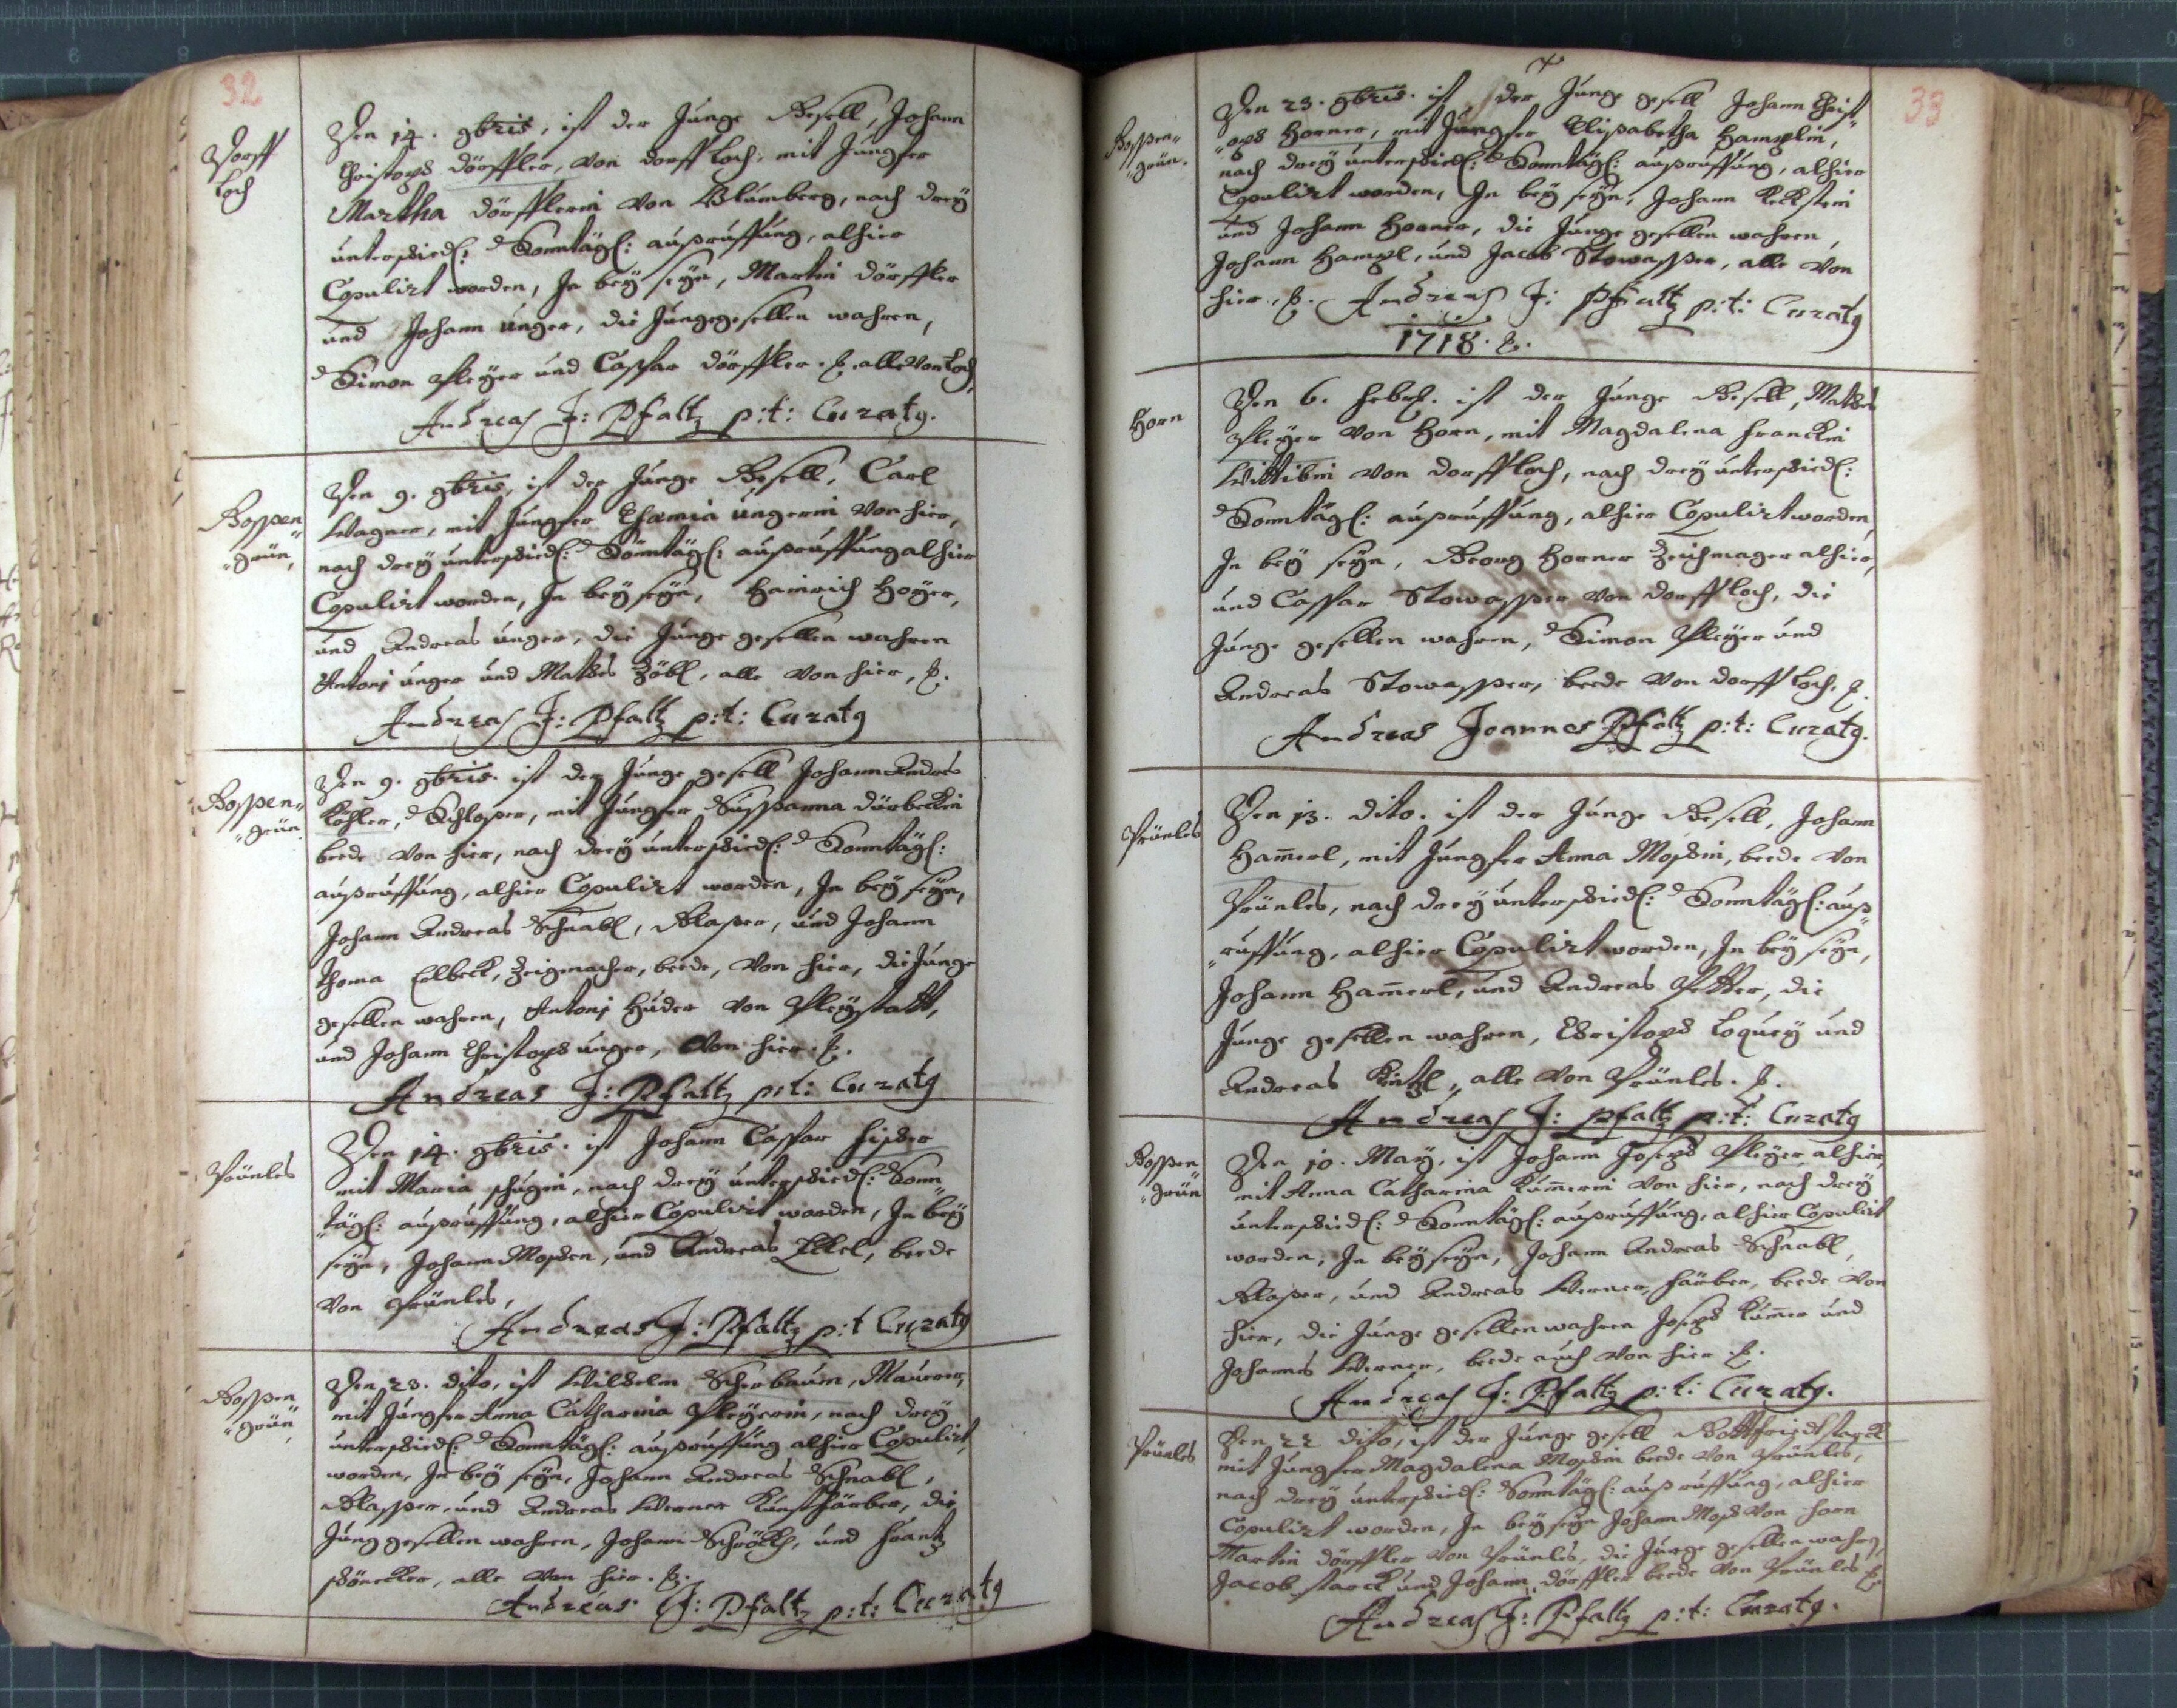 32
Dorff
Loch
Den 14. 9bris, ist der Junge Gesell, Johann
Christoph dörffler, von dorff Loch, mit Jungfer
Martha dörfflerin von Blumberg, nach drey
unterschiedl: Sonntägl: außruffung, alhier
Copulirt worden, In bey seyn, Martin dörffler
und Johann Unger, die Jungegesellen wahren,
Simon Pleyer und Caspar dörffler. alle von Loch,
Andreas J: Pfaltz p:t: Curatg.
Boppen"
"grün,
Den 9. 9bris, ist der Junge Gesell, Carl
Wagner, mit Jungfer Ungerin von hier,
nach drey unterschiedl: Sonntägl: außruffung alhier
Copulirt worden, In bey seyn, Hainrich Hoyer,
und Andreas unger, die Junge gesellen wahren
Antoni unger und Mathes Zöbl, alle von hier,
Andreas J: Pfaltz p:t: Curatg
Boppen"
"grün
Den 9. 9bris. ist der Junge gesell Johann Andres
Köhler, Schloßer, mit Jungfer Sußanna dürbeckin
beede von hier, nach drey unterschiedl: Sonntägl:
außruffung, alhier Copulirt worden, In bey seyn,
Johann Andreas Schnabl, Glaßer, und Johann
Thoma Eelbeck, Zeigmacher, beede, von hier, die Junge
gesellen wahren, Antoni Huder von Pleystatt,
und Johann Christoph unger, von hier.
Andreas J: Pfaltz p:t: Curatg
Prünles
Den 14. 9bris. ist Johann Caspar Fischer
mit Maria nach drey unterschiedl: Sonn"
"tägl: außruffung, alhier Copulirt worden, In bey
seyn, Johann Moschen, und Andreas Eckel, beede
von Prünles,
Andreas J: Pfaltz p:t Curatg
Boppen"
"grün,
Den 23. dito, ist Wilhelm Scherbaum, Maurer,
mit Jungfer Anna Catharina Pleyerin, nach drey
unterschiedl: Sonntägl: außruffung alhier Copulirt
worden, In bey seyn, Johann Andreas Schnabl,
Glasser, und Andreas Werner Kunstfärber, die
Jung gesellen wahren, Johann und Frantz
alle von hier.
Andreas J: Pfaltz p:t: Curatg
33
Boppen"
"grün.
Den 23. 9bris. ist der Junge gesell Johann Christ"
"oph Horner, mit Jungfer Elisabetha Hamplin,
nach drey unterschiedl: Sonntägl: außruffung, alhier
Copulirt worden, In bey seyn, Johann Keckstein
und Johann Horner, die Junge gesellen wahren,
Johann Hampl, und Jacob Stowasser, alle von
hier. Andreas J: Pfaltz p:t: Curatg
1718.
Horn
Den 6. Febr. ist der Junge Gesell, Mathes
Pleyer von Horn, mit Magdalena Franckin
Wittibin von dorff Loch, nach drey unterschiedl:
Sonntägl: außruffung, alhier Copulirt worden,
In bey seyn, Georg Horner Zeichmager alhier,
und Caspar Stowasser von dorff Loch, die
Junge gesellen wahren, Simon Pleyer und
Andreas Stowasser, beede von dorff Loch.
Andreas Joannes Pfaltz p:t: Curatg.
Prünles
Den 13. dito. ist der Junge Gesell, Johann
Ham̄erl, mit Jungfer Anna Moschin, beede von
Prünles, nach drey unterschiedl: Sonntägl: auß"
"ruffung, alhier Copulirt worden, In bey seyn,
Johann Ham̄erl, und Andreas die
Junge gesellen wahren, Christoph Loquey und
Andreas alle von Prünles.
Andreas J: Pfaltz p:t: Curatg
Boppen"
"grün
Den 10. May, ist Johann Joseph Pleyer alhier,
mit Anna Catharina Kum̄erin von hier, nach drey
unterschiedl: Sonntägl: außruffung, alhier Copulirt
worden, In bey seyn, Johann Andreas Schnabl,
Glaßer, und Andreas Werner, färber, beede von
hier, die Junge gesellen wahren Joseph Kum̄er und
Johannes Werner, beede auch von hier.
Andreas J: Pfaltz p:t: Curatg.
Prünles
Den 22 dito, ist der Junge gesell Gottfriedt starck
mit Jungfer Magdalena Moschin beede von Prünles,
nach drey unterschiedl: Sonntägl: außruffung, alhier
Copulirt worden, In bey seyn Johann Mosch von Horn
Martin dörffler von Prünles, die Junge gesellen wahren,
Jacob starck und Johann dörffler beede von Prünles
Andreas J: Pfaltz p:t: Curatg.